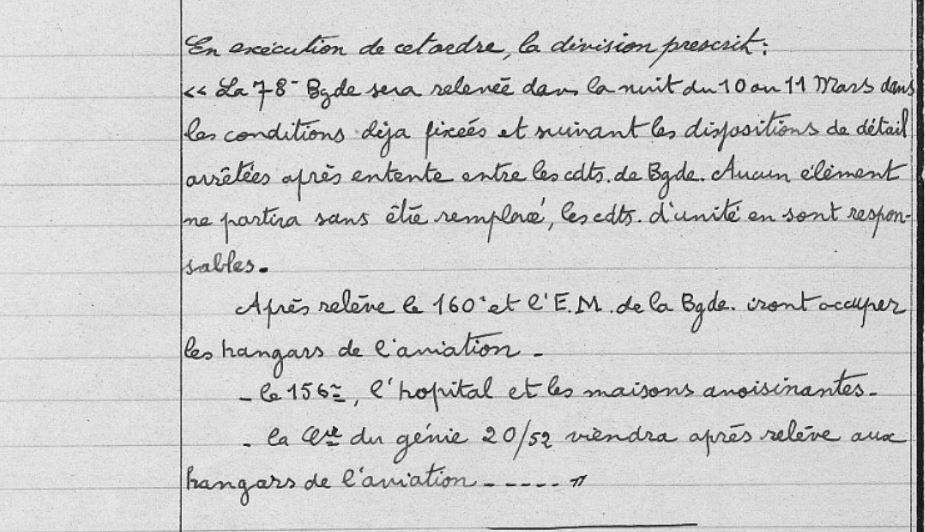 En exécution de cet ordre, la division prescrit :
« La 78e Bgde sera relevée dans la nuit du 10 au 11 Mars dans
les conditions déja fixées et suivant les dispositions de détail
arrêtées après entente entre les cdts. de Bgde. Aucun élément
ne partira sans être remplacé, les cdts. d'unité en sont respon-
sables.
Après relève le 160e et l'E.M. de la Bgde. iront occuper
les hangars de l'aviation -
- le 156e, l'hopital et les maisons avoisinantes -
- la Cie du génie 20/52 viendra après relève aux
hangars de l'aviation ----- "